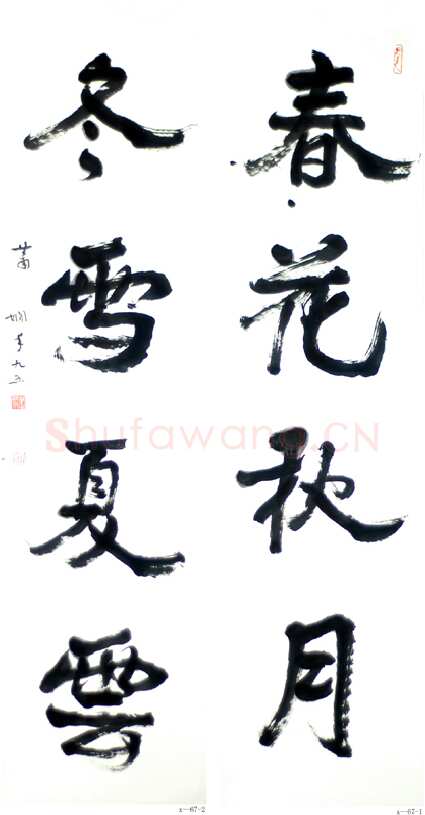 春花秋月
冬雪夏雲
蕭嫻年九五
Shufawang.CN
x—67-2
x—67-1